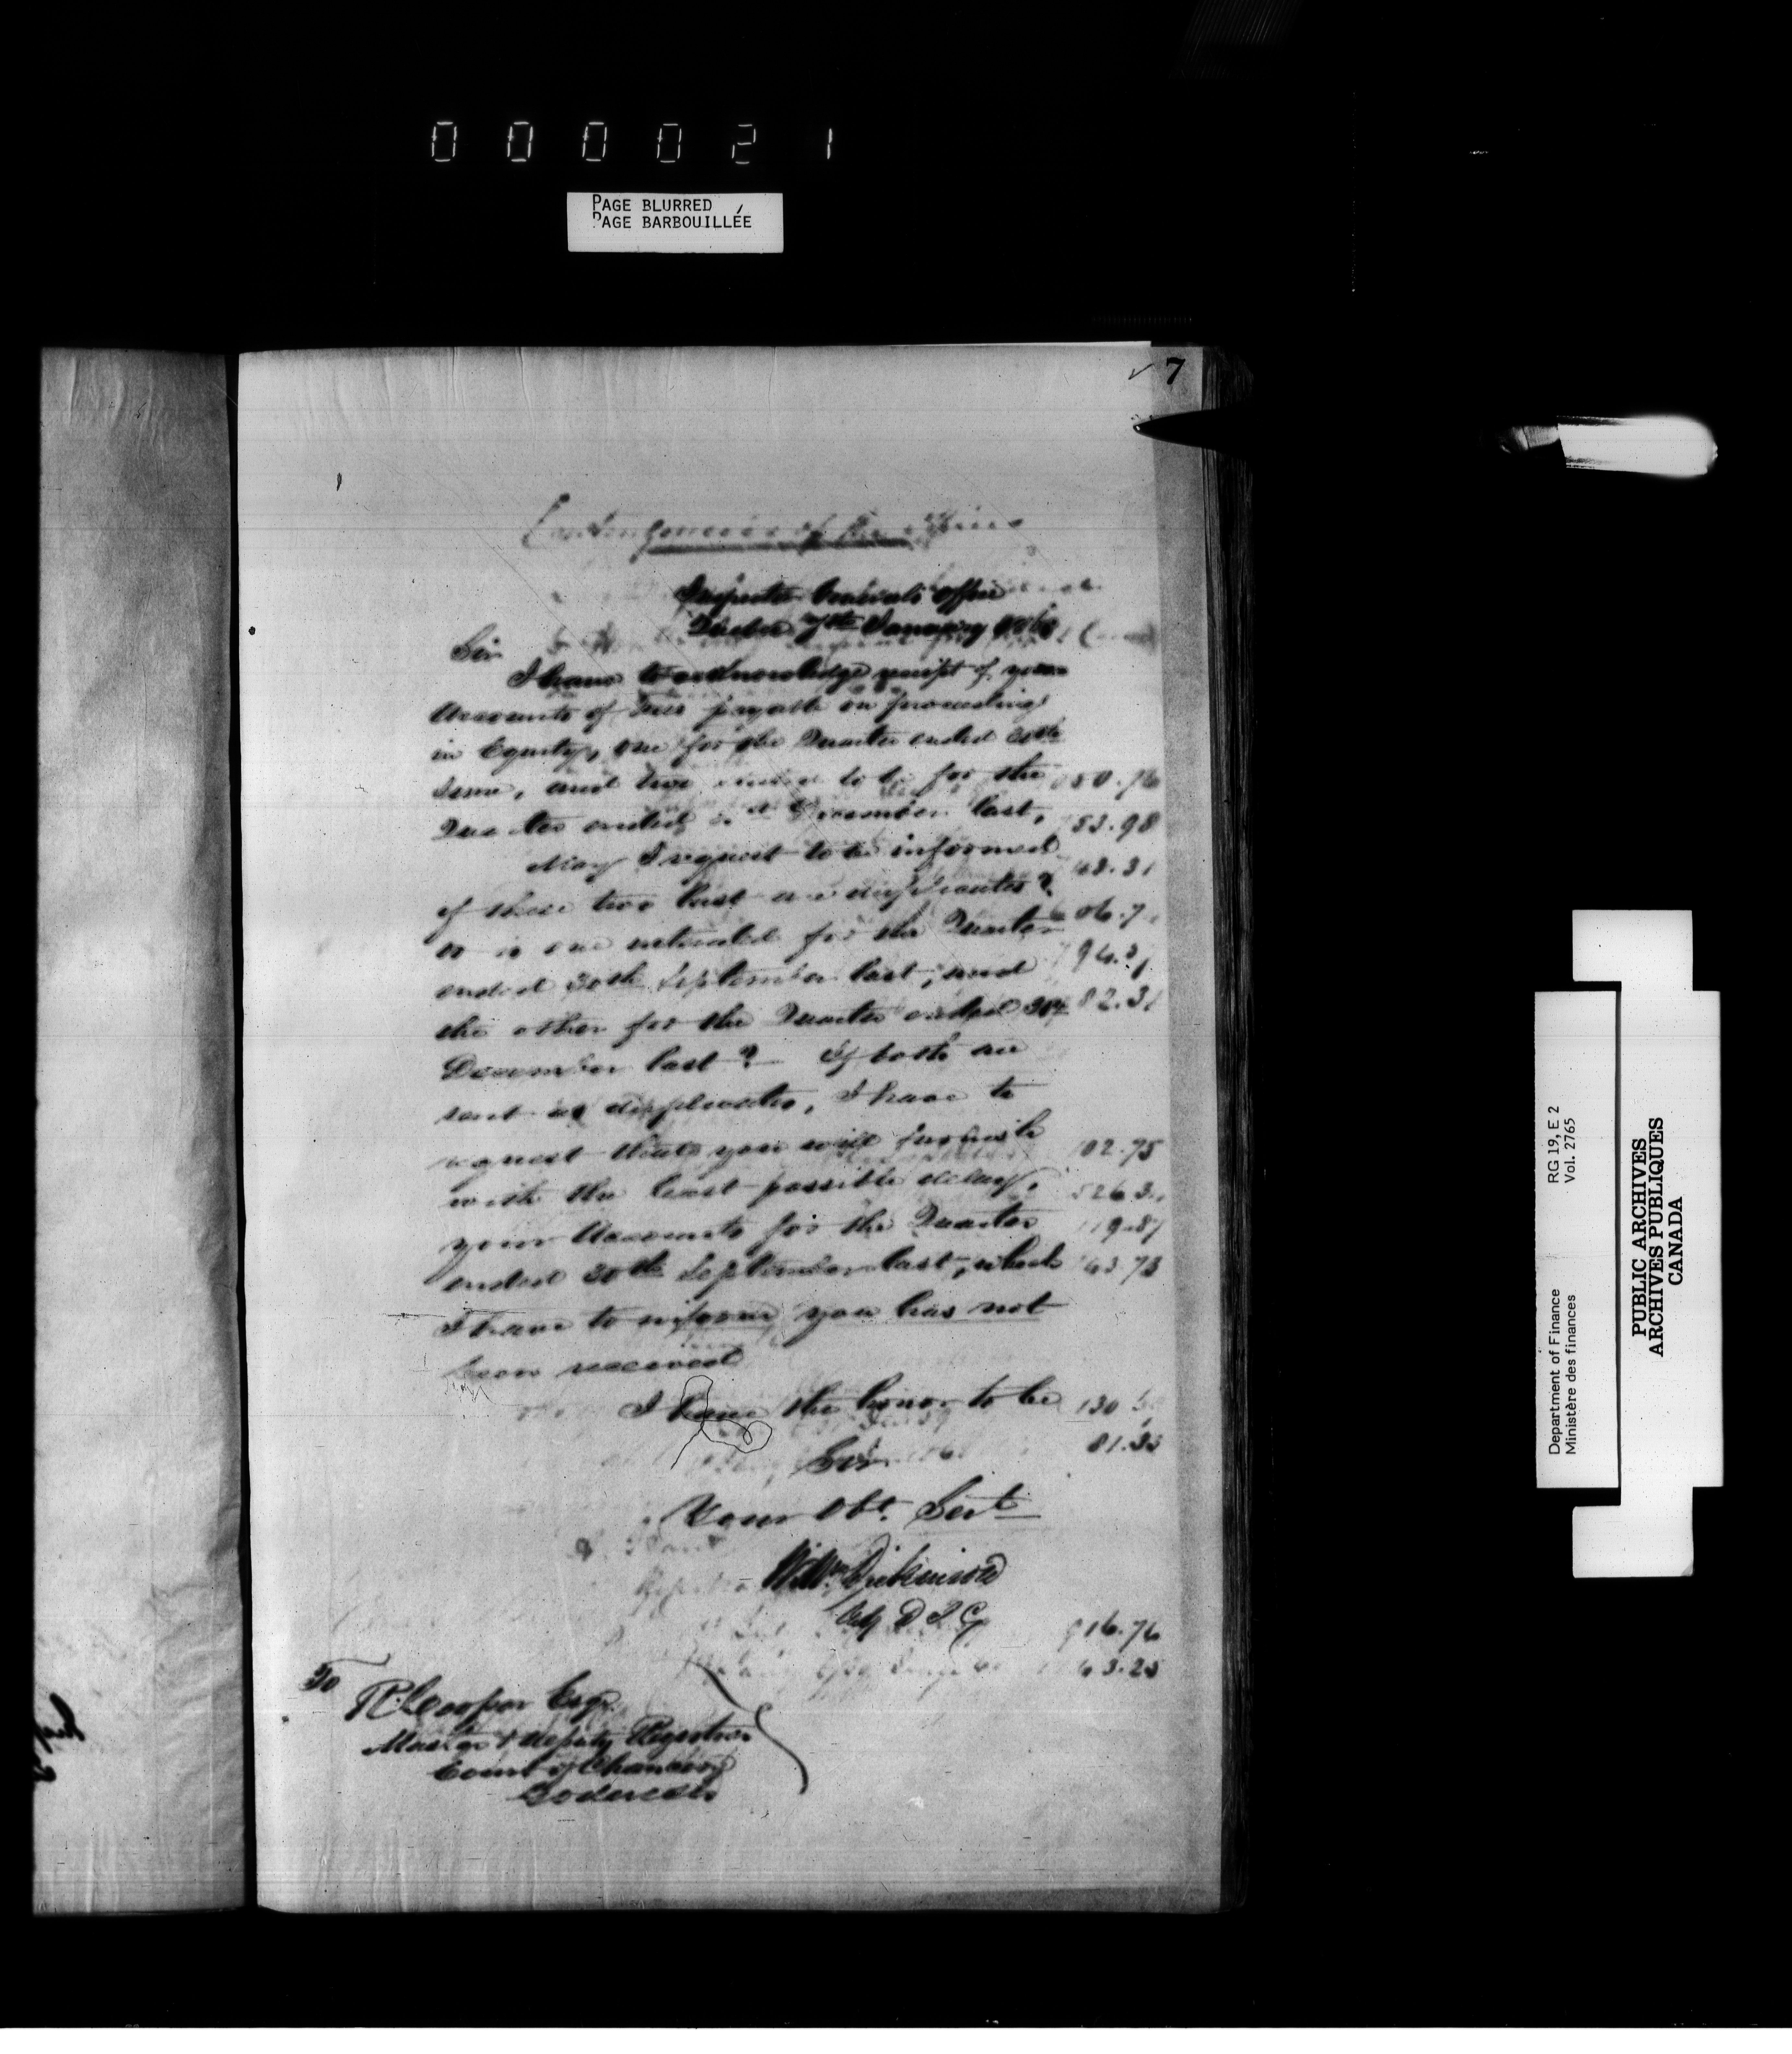 000021
PAGE BLURRED
PAGE BARBOUILLÉE
7
Contingencies of the office
Inspector Generals Office
Quebec 7th January
Sir
I have to acknowledge receipt of your
Accounts of Fees payable on proceedings
in Equity, one for the Quarter ended 30th
June, and two for the
Quarter ended December last,
May I request to be informed
if these two last are duplicates?
or is one intended for the Quarter
ended 30th September last, and
the other for the Quarter ended 31st
December last? If both are
sent as duplicates, I have to
request that you will furnish
with the least possible delay,
your Accounts for the Quarter
ended 30th September last, which
I have to inform you has not
been received
I have the honor to be
Sir
Your Obt. Servt
Wm Dickinson
Actg D I G
To
R. Cooper Esqr.
Master & Deputy Registrar
Court of Chancery
Goderich
50.76
53.98
63.31
06.7
94.
82.31
102.75
526.3
119.87
63.73
130
81.33
916.76
63.25
Department of Finance RG 19, E 2
Ministère des finances Vol. 2765
PUBLIC ARCHIVES
ARCHIVES PUBLIQUES
CANADA